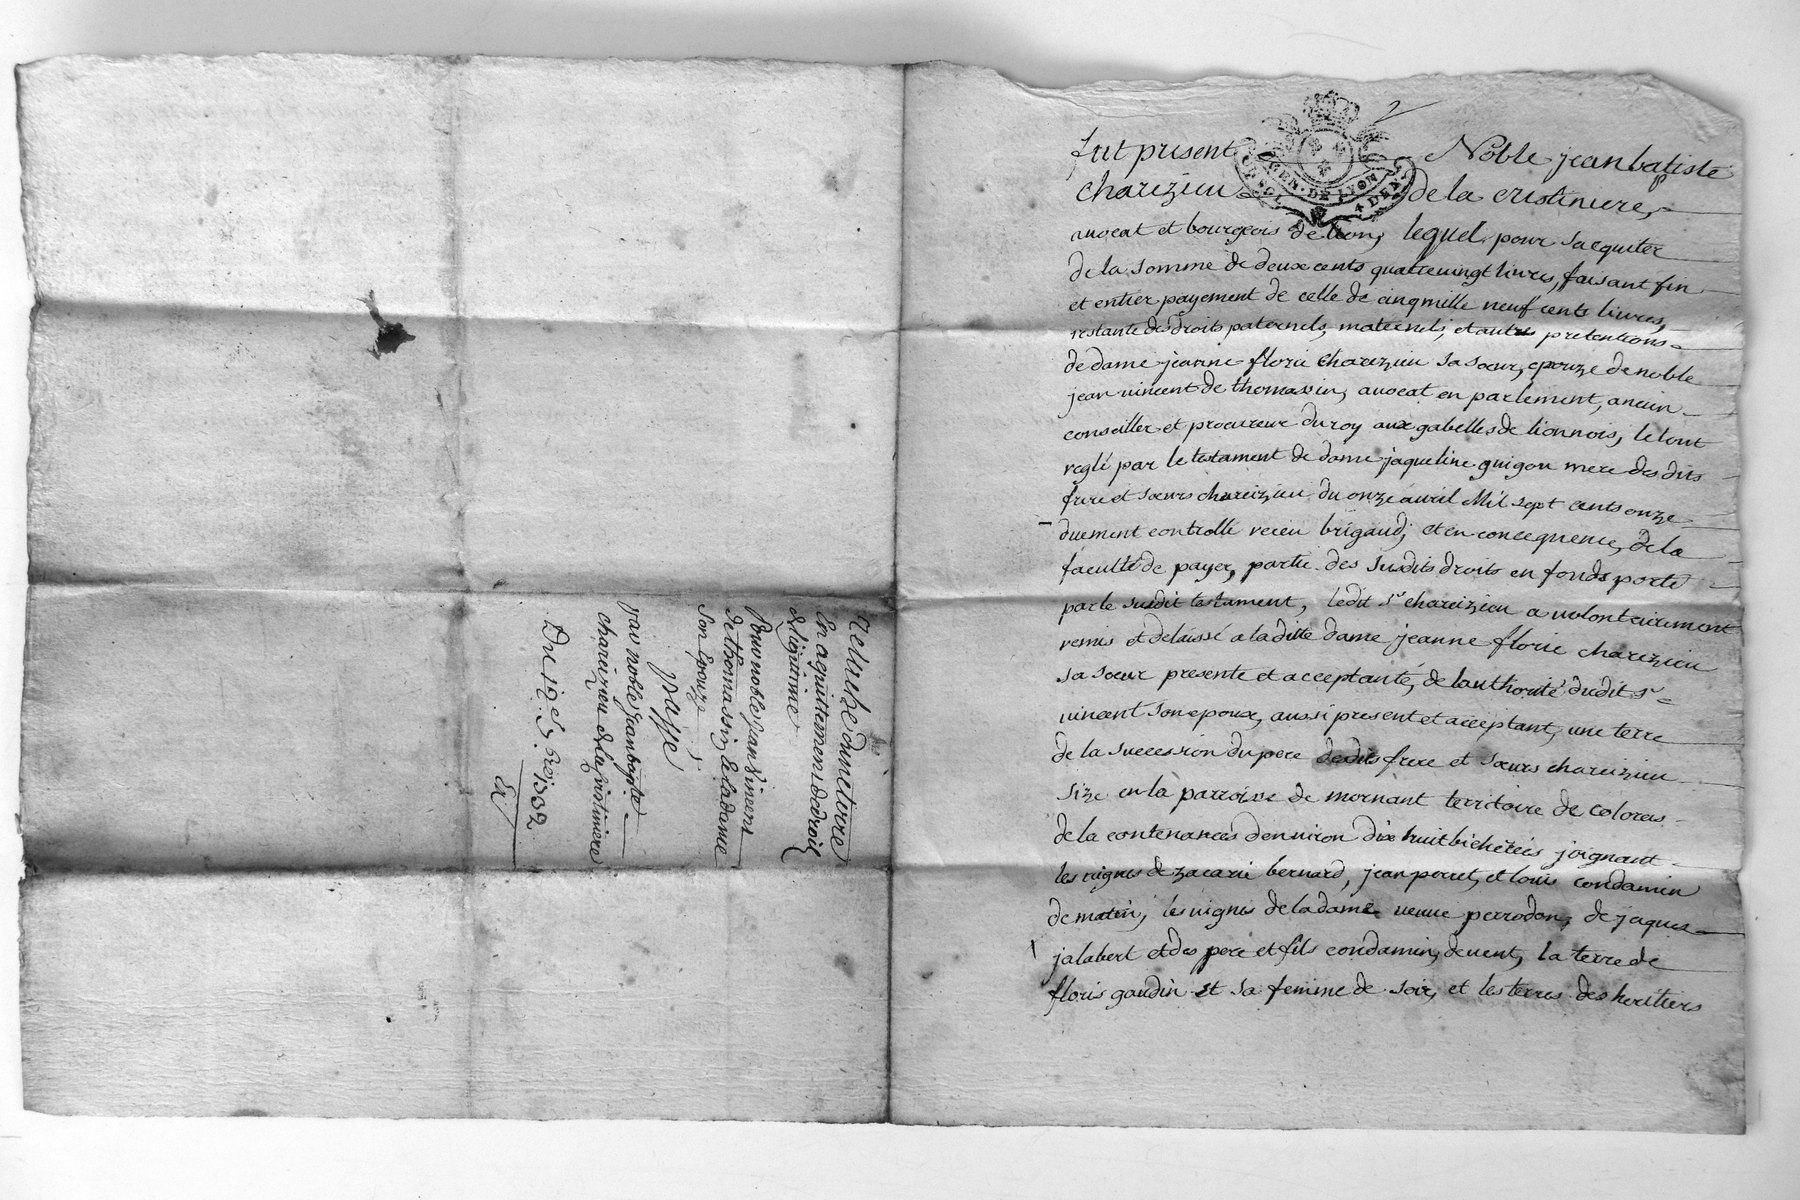 2
fut present Noble jean batiste
chareizieu de la cristiniere,
GEN. DE LYON
avocat et bourgeois de lion, lequel pour sacquiter
de la somme de deux cents quatrevingt livres, faisant fin
et entier payement de celle de cinq mille neuf cents livres,
restante des droits paternels, maternels, et autres pretentions
de dame jeanne florie chareizieu sa sœur, epouze de noble
jean vincent de thomassin, avocat en parlement, ancien
conseiller et procureur du roy aux gabelles de lionnois, le tout
reglé par le testament de dame jaqueline guigou mere des dits
frere et sœurs chareizieu du onze avril Mil sept cents onze
duement controllé receu brigaud, et en concequence, de la
faculté de payer, partie des susdits droits en fonds porté
par le susdit testament, ledit sr chareizieu a volontairement
remis et delaissé a la ditte dame jeanne florie chareizieu
sa sœur presente et acceptante, de lauthorité dudit sr
vincent son epoux, aussi present et acceptant, une terre
de la succession du pere desdits frere et sœurs chareizieu
size en la parroisse de mornant territoire de colores
de la contenance denviron dix huit bicherées joignant
les vignes de zacarie bernard, jean perret, et louis condamin
de matin, les vignes de la dame veuve perrodon, de jaques
jalabert et des pere et fils condamin, de vent, la terre de
floris gaudin et sa femme de soir, et les terres des heritiers
Relache dune terre
En aquittement de droit
de legitime
Pour noble Jean Vincent
de Thomassin, & la dame
son Epouze
Passé
Par noble Jean baptiste
chareizieu de la cristiniere
Du 19e 1732